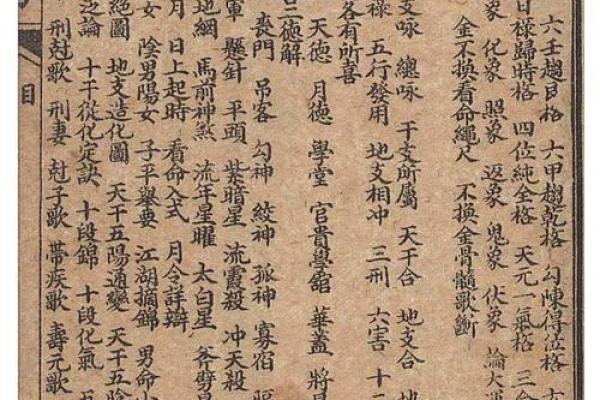 六壬趨艮格 六甲趨乾格 勾陳得位格
日祿歸時格 四位純全格 天元一氣格 三合
象 化象 照象 返象 鬼象 伏象 論大運
金不換看命繩尺 不換金骨髓歌斷
支咏 總咏 干支所屬 天干合 地支合 地
祿 五行發用 地支相冲 三刑 六害 十二
各有所喜
天德 月德 學堂 官貴學舘 華蓋 將星
極解
喪門 吊客 勾神 絞神 孤神 寡宿
軍 懸針 平頭 紫暗星 流霞殺 冲天殺
地網 馬前神煞 流年星曜 太白星 斧劈星
月 日上起時 看命入式 月令詳辯
女 陰男陽女 子平舉要 江湖摘錦 男命小
絕圖 地支造化圖 天干五陽通變 天干五陰
之論 十干從化定訣 十段錦 十段化氣 五
刑尅歌 刑妻 尅子歌 帶疾歌 壽元歌
目